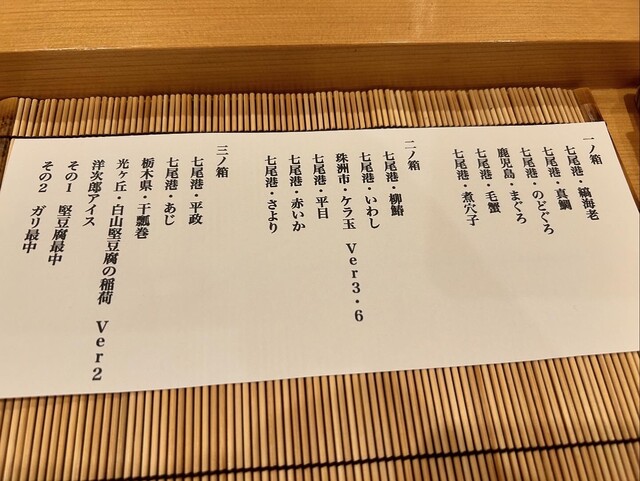 一ノ箱
七尾港・縞海老
七尾港・真鯛
七尾港・のどぐろ
鹿児島・まぐろ
七尾港・毛蟹
七尾港・煮穴子
二ノ箱
七尾港・柳鰆
七尾港・いわし
珠洲市・ケラ玉 Ver3・6
七尾港・平目
七尾港・赤いか
七尾港・さより
三ノ箱
七尾港・平政
七尾港・あじ
栃木県・干瓢巻
光ヶ丘・白山堅豆腐の稲荷 Ver2
洋次郎アイス
その1 堅豆腐最中
その2 ガリ最中